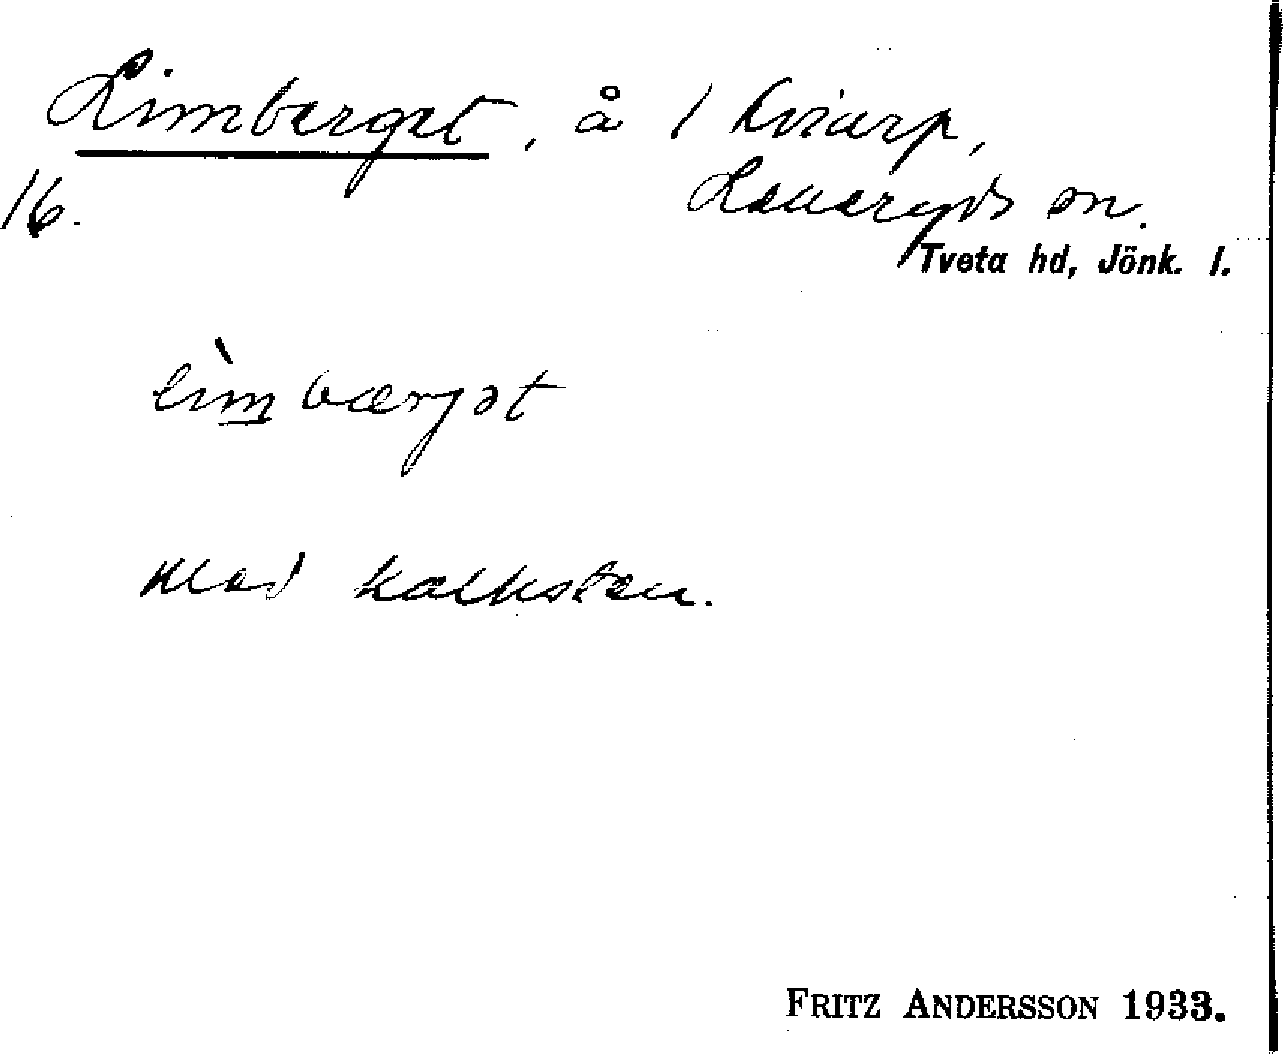 Limberget, å 1 Kviarp,
16. Lekeryds sn.
Tveta hd, Jönk. l.
lìmbærjət
Med kalksten.
FRITZ ANDERSSON 1933.